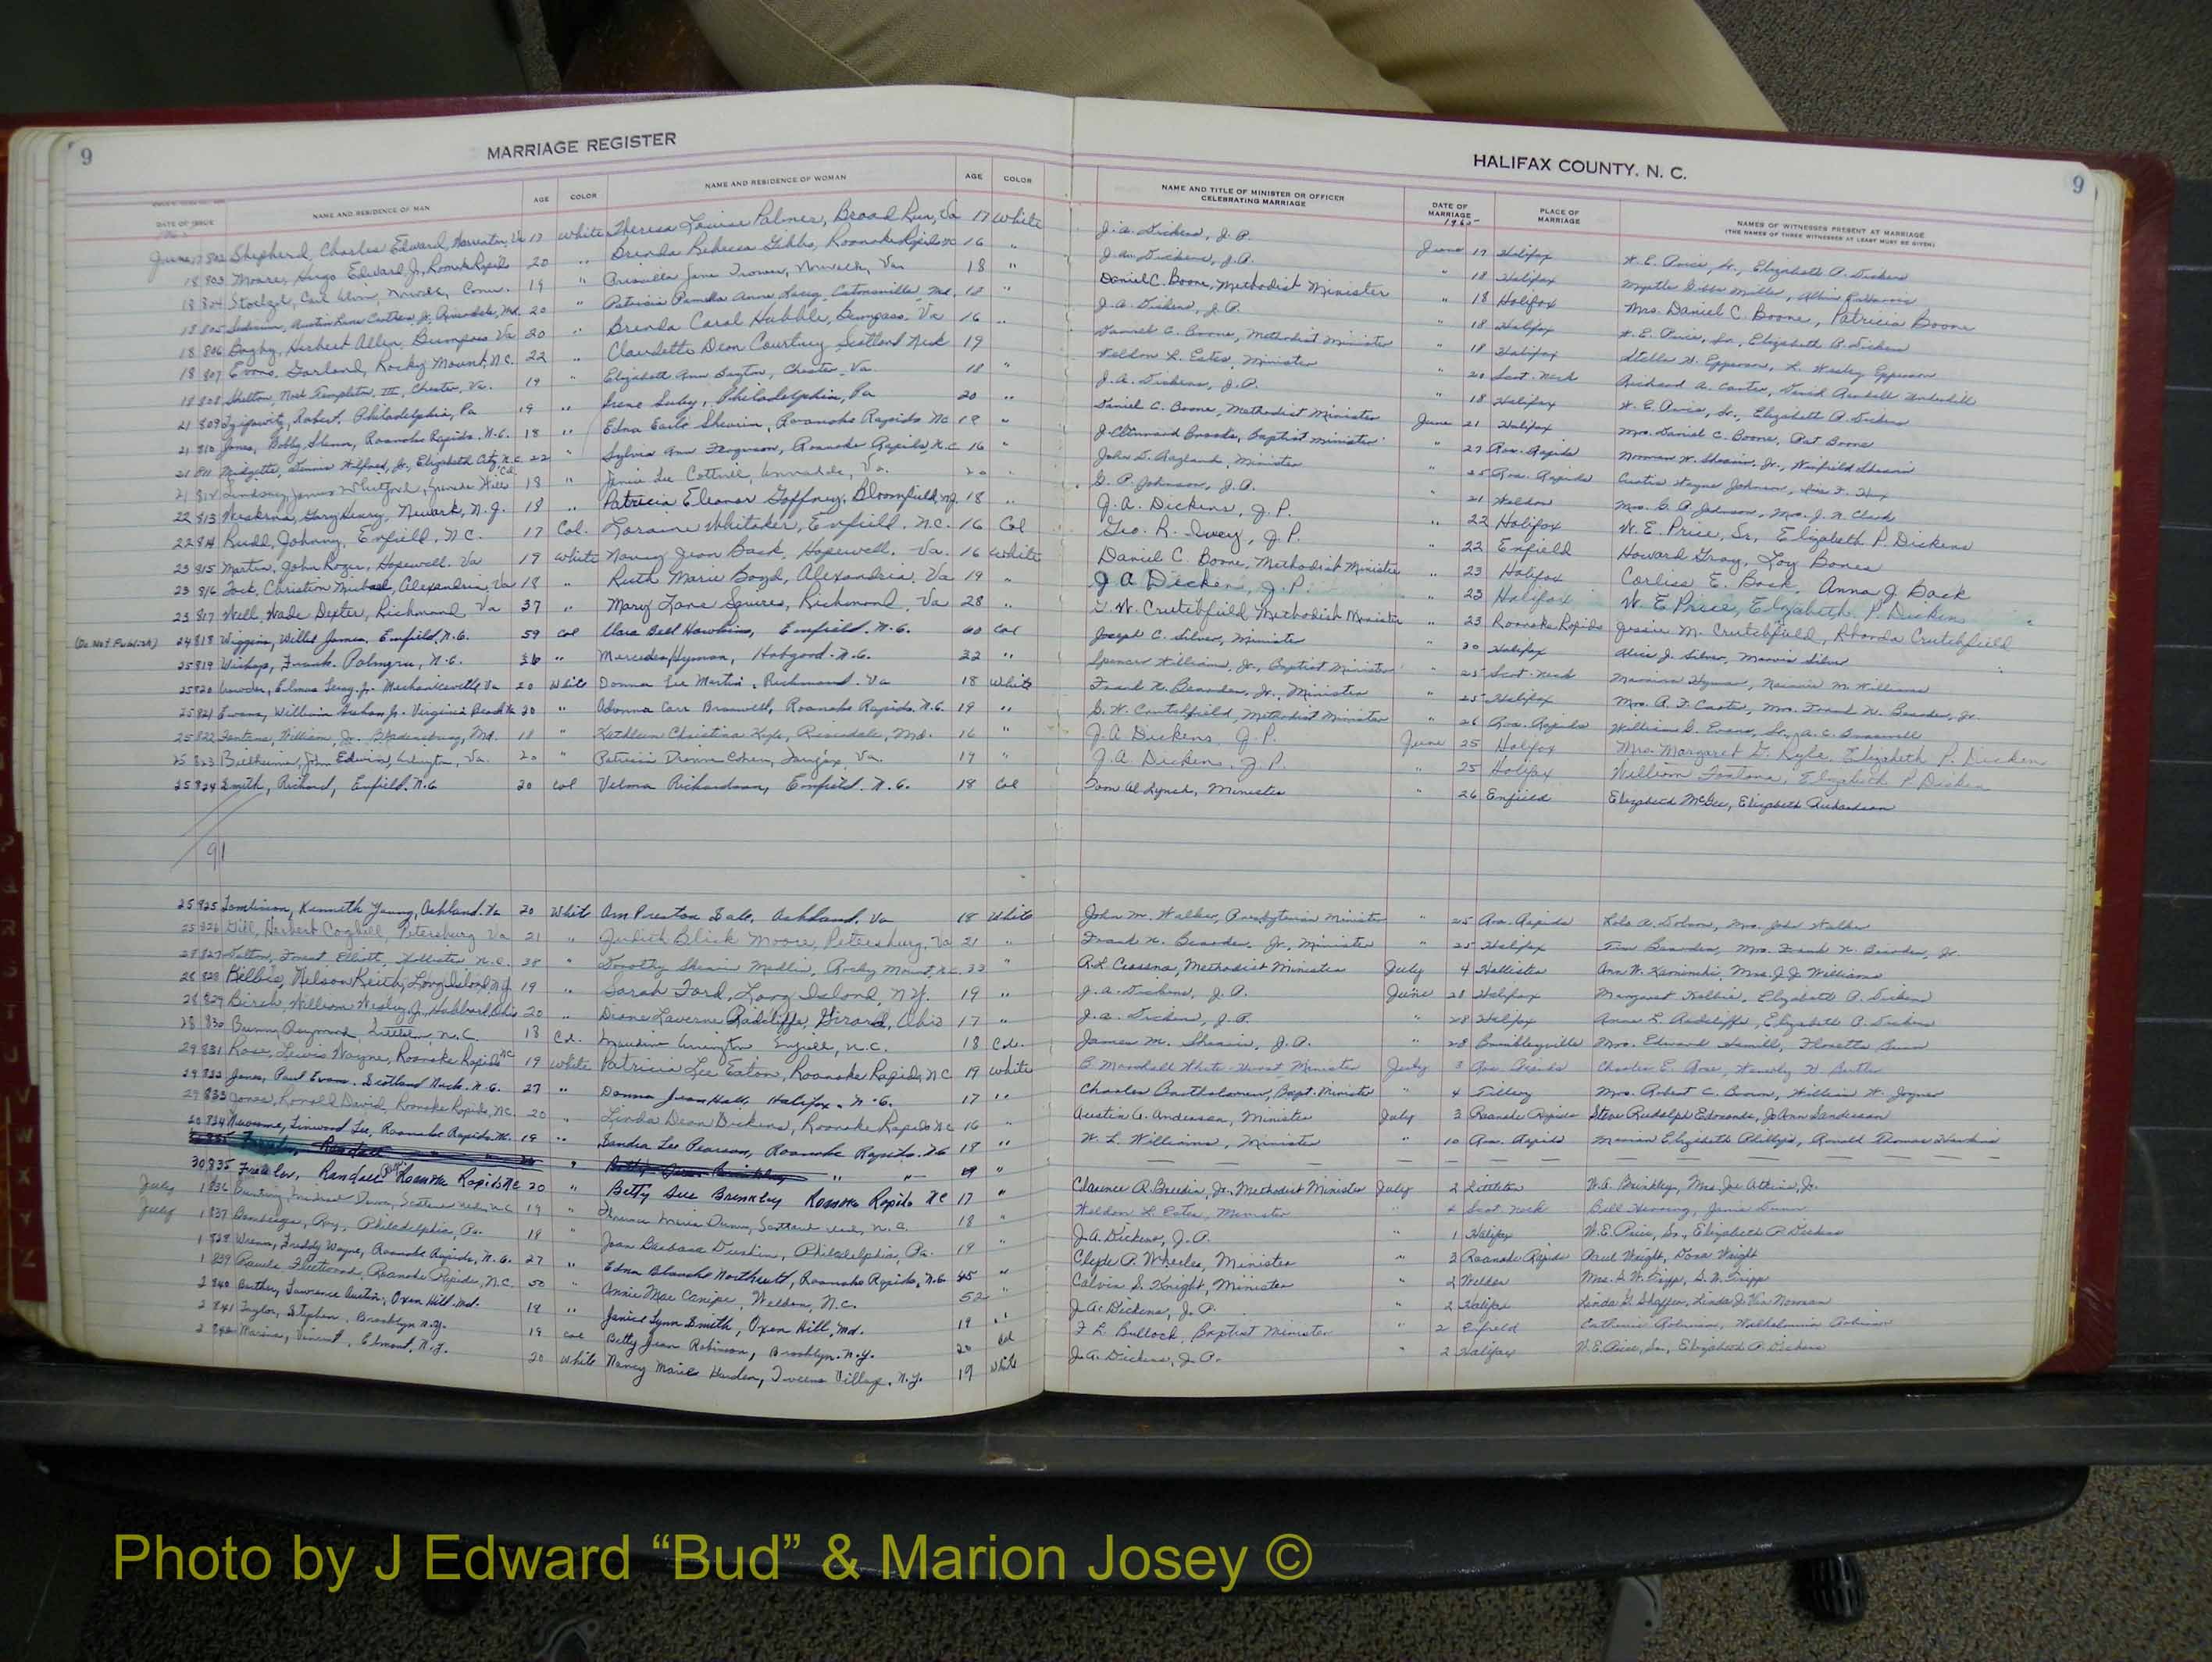 9
MARRIAGE REGISTER
HALIFAX COUNTY, N. C.
9
DATE OF ISSUE NAME AND RESIDENCE OF MAN AGE COLOR NAME AND RESIDENCE OF WOMAN AGE COLOR NAME AND TITLE OF MINISTER OR OFFICER CELEBRATING MARRIAGE DATE OF MARRIAGE 1965 PLACE OF MARRIAGE NAMES OF WITNESSES PRESENT AT MARRIAGE (THE NAMES OF THREE WITNESSES AT LEAST MUST BE GIVEN)
June 17 802 Shepherd, Charles Edward, Warrenton, Va 17 White Theresa Louise Palmer, Broad Run, Va 17 White J. A. Dickens, J. P. June 17 Halifax W. E. Price, Sr., Elizabeth P. Dickens
18 803 Moore, Hugo Edward, Jr, Roanoke Rapids 20 " Brenda Rebecca Gibbs, Roanoke Rapids NC 16 " J. A. Dickens, J. P. " 18 Halifax
18 804 19 " Priscilla Jane 18 " Daniel C. Boone, Methodist Minister " 18 Halifax Mrs. Daniel C. Boone, Patricia Boone
18 805 20 " Patricia Pamela Anne Catonsville, Md. 18 " J. A. Dickens, J. P. " 18 Halifax W. E. Price, Sr., Elizabeth P. Dickens
18 806 Bagby, Herbert Allen, Bumpass Va 20 " Brenda Carol Hubble, Bumpass, Va 16 " Daniel C. Boone, Methodist Minister " 18 Halifax Stella W. Epperson, L. Wesley Epperson
18 807 Evans, Garland, Rocky Mount, N.C. 22 " Claudette Dean Courtney Scotland Neck 19 Weldon L. Estes, Minister " 20 Scot. Neck Richard A. Carter,
18 808 Shelton, Templeton, III, Chester, Va. 19 " Elizabeth Ann Chester, Va. 18 " J. A. Dickens, J. P. " 18 Halifax W. E. Price, Sr., Elizabeth P. Dickens
21 809 Robert, Philadelphia, Pa 19 " Irene Philadelphia, Pa 20 " Daniel C. Boone, Methodist Minister June 21 Halifax Mrs. Daniel C. Boone, Pat Boone
21 810 Jones, Bobby Glenn, Roanoke Rapids, N.C. 18 " Edna Earle Shearin, Roanoke Rapids NC 18 " Baptist Minister " 27 Roa. Rapids Norman W. Shearin, Jr., Winfield Shearin
21 811 Midgette, Wilford, Jr., Elizabeth City N.C. 22 " Sylvia Ann Ferguson, Roanoke Rapids N.C 16 " John D. Ragland, Minister " 25 Roa. Rapids Curtis Wayne Johnson,
21 812 Lindsay, James Whitford, 18 " Janie Lee Cottrell, Annandale, Va. 20 " G. P. Johnson, J. P. " 21 Weldon Mrs. G. P. Johnson, Mrs. J. N. Clark
22 813 Gary Henry, Newark, N.J. 18 " Patricia Eleanor Gaffney, Bloomfield, NJ 18 " J. A. Dickens, J. P. " 22 Halifax W. E. Price, Sr., Elizabeth P. Dickens
22 814 Rudd, Johnny, Enfield N.C. 17 Col. Loraine Whitaker, Enfield, N.C. 16 Col Geo. R. Ivey, J. P. " 22 Enfield Howard Gray, Loy Bones
23 815 Martin, John Roger, Hopewell, Va 17 White Nancy Jean Back, Hopewell, Va. 16 White Daniel C. Boone, Methodist Minister " 23 Halifax Corliss E. Back, Anna J Back
23 816 Christian Michael, Alexandria, Va 18 " Ruth Marie Boyd, Alexandria, Va 19 " J A Dickens, J. P. " 23 Halifax W. E Price, Elizabeth P. Dickens
23 817 Well, Wade Dexter, Richmond Va 37 " Mary Jane Squires, Richmond, Va 28 " G. W. Crutchfield Methodist Minister " 23 Roanoke Rapids Josire M. Crutchfield, Rhonda Crutchfield
(Do Not Publish) 24 818 Wiggins, Willis James, Enfield, N.C. 59 Col Clara Bell Hawkins, Enfield, N.C. 60 Col Joseph C. Silver, Minister " 30 Halifax Alice J. Silver, Marvin Silver
25 819 Bishop, Frank, Palmyra, N.C. 36 " Mercedes Hyman, Hobgood, N.C. 32 " Spencer Williams, Jr., Baptist Minister " 25 Scot. Neck Hyman, M. Williams
25 820 Elmus Leroy, Jr. Mechanicsville Va 20 White Donna Lee Martin, Richmond, Va 18 White Frank N. Bearden, Jr., Minister " 25 Halifax Mrs. A. F. Carter, Mrs. Frank N. Bearden, Jr.
25 821 Evans, William Graham Jr. Virginia Beach Va 20 " Adonna Carr Braswell, Roanoke Rapids, N.C. 19 " G. W. Crutchfield, Methodist Minister " 26 Roa. Rapids William G. Evans, Sr., A. C. Braswell
25 822 Fontana, William, Jr. Bladensburg, Md. 18 " Kathleen Christina Kyle, Riverdale, Md. 16 " J. A Dickens J. P. June 25 Halifax Mrs. Margaret G. Kyle, Elizabeth P. Dickens
25 823 John Edwin, Arlington, Va. 20 " Patricia Dianne Cohen, Fairfax, Va. 19 " J. A Dickens, J. P. " 25 Halifax William Fontana, Elizabeth P Dickens
25 824 Smith, Richard, Enfield, N.C 20 Col Velma Richardson, Enfield, N.C. 18 Col Tom Al Lynch, Minister " 26 Enfield Elizabeth McGee, Elizabeth Richardson
91
25 825 Tomlinson, Kenneth Young, Ashland, Va 20 White Ann Preston Ashland, Va 18 White John M. Walker, Presbyterian Minister " 25 Roa. Rapids Lola A. Dobson, Mrs. John Walker
25 826 Gill, Herbert Coghill, Petersburg Va 21 " Judith Blick Moore, Petersburg, Va 21 " Frank N. Bearden, Jr., Minister " 25 Halifax Tim Bearden, Mrs. Frank N. Bearden, Jr.
28 827 Dalton, Forest Elliott, Hollister N.C. 38 " Dorothy Shearin Medlin, Rocky Mount, N.C. 33 " R. L. Crossno, Methodist Minister July 4 Hollister Ann W. Kaminski, Mrs. J. J. Williams
28 828 Nelson Keith, Long Island, N.Y 19 " Sarah Ford, Long Island, N.Y. 19 " J. A. Dickens, J. P. June 28 Halifax Margaret Elizabeth P. Dickens
28 829 Birch, William Wesley, Jr, Hubbard, Ohio 20 " Diane Laverne Radcliffe, Girard, Ohio 17 " J. A. Dickens, J. P. " 28 Halifax Anna L. Radcliffe, Elizabeth P. Dickens
28 830 Bunn, Raymond, Littleton, N.C. 18 Col. Maudine Arrington Enfield, N.C. 18 Col. James M. Shearin, J. P. " 28 Brinkleyville Mrs. Edward Hamill, Floretta Bunn
29 831 Rose, Lewis Wayne, Roanoke Rapids NC 19 White Patricia Lee Eaton, Roanoke Rapids, NC 19 White B Marshall White Minister July 3 Roa. Rapids Charles E. Rose,
29 832 Jones, Paul Evans, Scotland Neck, N.C. 27 " Donna Jean Hale, Halifax, N.C. 17 " Charles Bartholomew, Bapt. Minister " 4 Tillery Mrs. Robert C. Brown, William W. Joyner
29 833 Jones, Ronald David, Roanoke Rapids, NC 20 " Linda Dean Dickens, Roanoke Rapids NC 16 " Austin A. Anderson, Minister July 3 Roanoke Rapids Steve Rudolph Edmonds, Jo Ann Sanderson
30 834 Linwood Lee, Roanoke Rapids, NC. 19 " Sandra Lee Pearson, Roanoke Rapids, NC 18 " W. L. Williams, Minister " 10 Roa. Rapids Marian Elizabeth Phillips, Ronald Thomas Hawkins
30 835 Randall Roanoke Rapids NC 20 " Betty Sue Brinkley Roanoke Rapids NC 17 " Clarence R. Breedin, Jr. Methodist Minister July 2 Littleton W. A. Brinkley, Mrs. Joe Atkins, Jr.
July 1 836 Bunting, Michael Dunn, Scotland Neck, N.C 19 " Dunn, Scotland Neck, N.C. 18 " Weldon L. Estes, Minister " 4 Scot. Neck Bill Herring, Janie Dunn
July 1 837 Roy, Philadelphia, Pa. 18 " Joan Barbara Durkin, Philadelphia, Pa. 19 " J. A. Dickens, J. P. " 1 Halifax W. E. Price, Sr., Elizabeth P. Dickens
1 838 Wrenn, Freddy Wayne, Roanoke Rapids, N.C. 27 " Edna Blanche Northcutt, Roanoke Rapids, N.C 45 " Clyde P. Wheeler, Minister " 3 Roanoke Rapids Paul Wright, Dora Wright
1 839 Fleetwood, Roanoke Rapids, N.C. 50 " Annie Mae Canipe, Weldon, N.C. 52 " Calvin S. Knight, Minister " 2 Weldon Mrs. D. W. Tripp, D. W. Tripp
2 840 Lawrence Austin, Oxon Hill, Md. 18 " Janice Lynn Smith, Oxon Hill, Md. 19 " J. A. Dickens, J. P. " 2 Halifax Linda G. Shiffer, Linda J. Van Norman
2 841 Taylor, Stephen, Brooklyn N.Y. 19 Col Betty Jean Robinson, Brooklyn, N.Y. 20 Col F. L. Bullock, Baptist Minister " 2 Enfield Catherine Robinson, Wilhelmina Robinson
2 842 Vincent, Elmont, N.Y. 20 White Nancy Marie Harden, Queens Village, N.Y. 19 White J. A. Dickens, J. P. " 2 Halifax W. E. Price, Sr., Elizabeth P. Dickens
Photo by J Edward “Bud” & Marion Josey ©